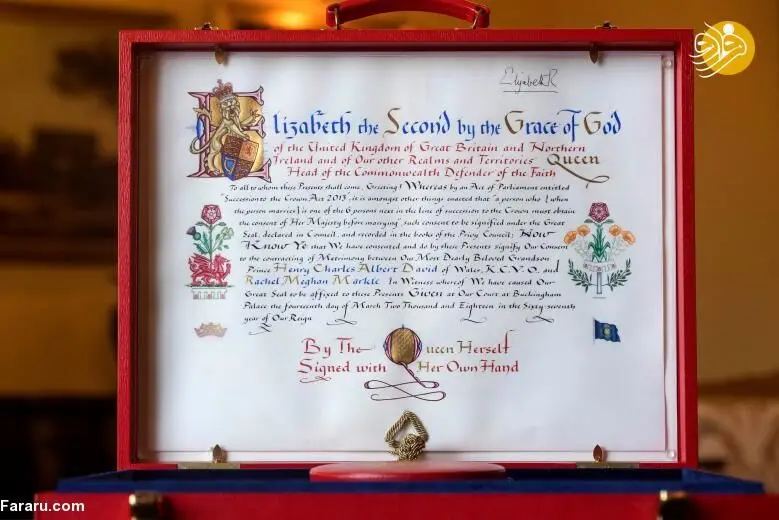 Elizabeth R
Elizabeth the Second by the Grace of God
of the United Kingdom of Great Britain and Northern
Ireland and of Our other Realms and Territories Queen
Head of the Commonwealth Defender of the Faith
To all to whom these Presents shall come, Greeting! Whereas by an Act of Parliament entitled
"Succession to the Crown Act 2013", it is amongst other things enacted that "a person who [when
the person marries] is one of the 6 persons next in the line of succession to the Crown must obtain
the consent of Her Majesty before marrying", such consent to be signified under the Great
Seal; declared in Council, and recorded in the books of the Privy Council; Now
Know Ye that We have consented and do by these Presents signify Our Consent
to the contracting of Matrimony between Our Most Dearly Beloved Grandson
Prince Henry Charles Albert David of Wales, K.C.V.O. and
Rachel Meghan Markle. In Witness whereof We have caused Our
Great Seal to be affixed to these Presents Given at Our Court at Buckingham
Palace the fourteenth day of March Two Thousand and Eighteen in the Sixty-seventh
year of Our Reign
By The Queen Herself
Signed with Her Own Hand
Fararu.com